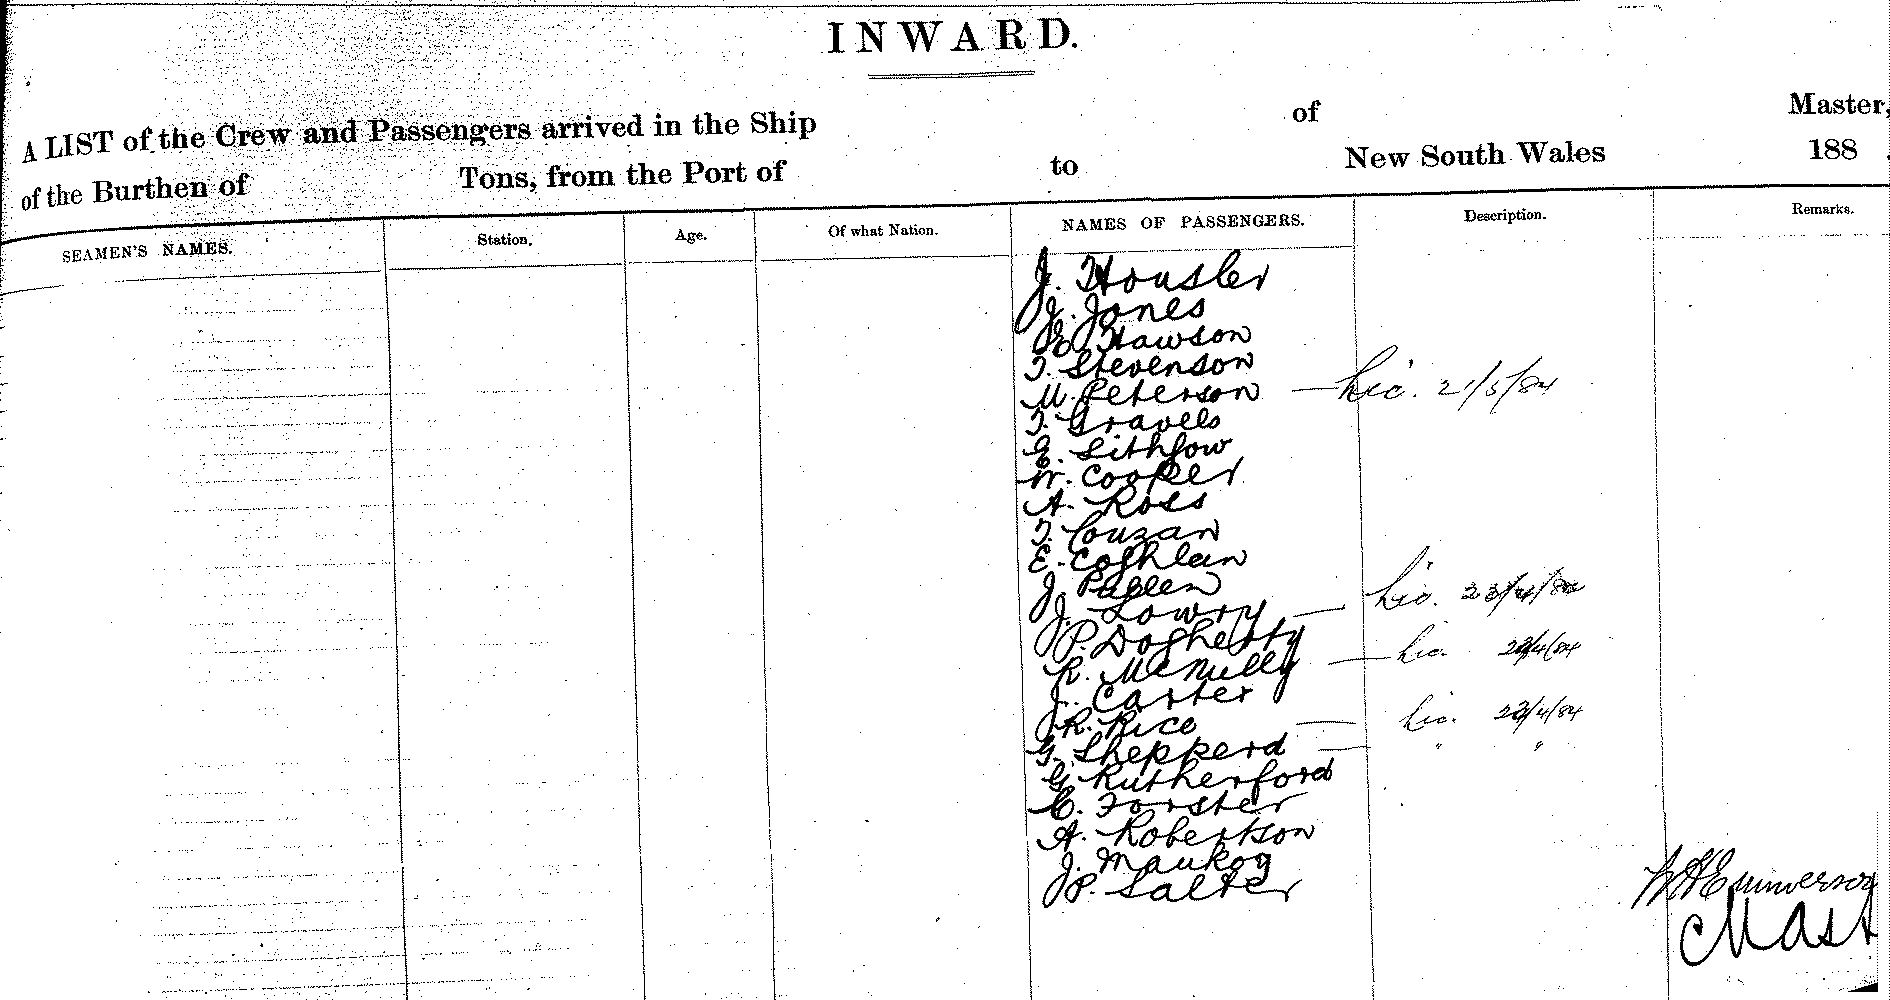 INWARD.
A LIST of the Crew and Passengers arrived in the Ship of Master,
of the Burthen of Tons, from the Port of to New South Wales 188
SEAMEN'S NAMES. Station. Age. Of what Nation. NAMES OF PASSENGERS. Description. Remarks.
J. Housler
J. Jones
E. Hawson
T. Stevenson
M. Peterson — Lic. 21/5/84
T. Gravells
E. Lithgow
W. Cooper
A. Ross
T. Couzan
E. Coghlan
J.
J. Lowry — Lic. 23/4/84
P. Dogherty
R. McNully — Lic. 23/4/84
J. Carter
R. Rice — Lic. 23/4/84
G. Shepperd — " "
G. Rutherford
C. Forster
A. Robertson
J. Maukoy
P. Salter
WH Emmerson
Mast